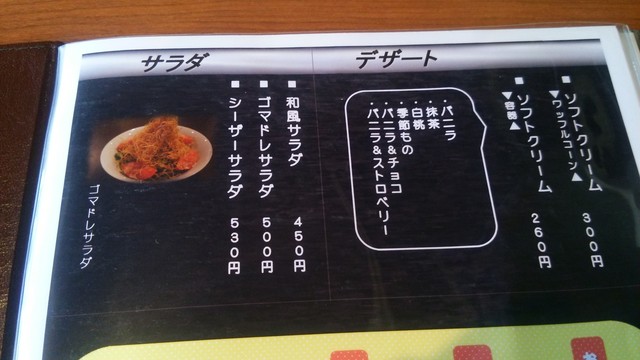 デザート
■ソフトクリーム 300円
▼ワッフルコーン▲
■ソフトクリーム 260円
▼容器▲
・バニラ
・抹茶
・白桃
・季節もの
・バニラ&チョコ
・バニラ&ストロベリー
サラダ
■和風サラダ 450円
■ゴマドレサラダ 500円
■シーザーサラダ 530円
ゴマドレサラダ